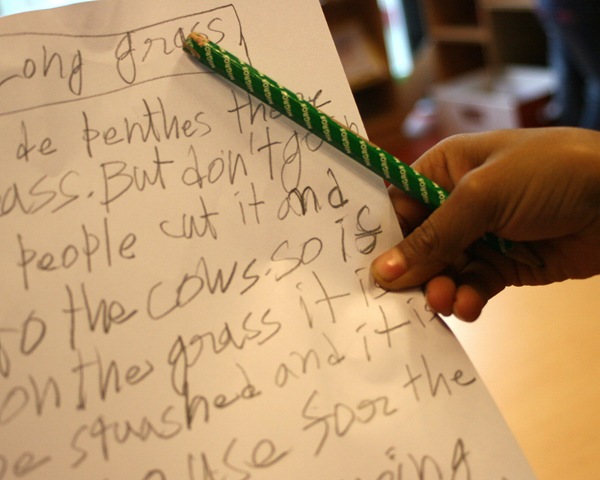 Long grass
de penthes there
ass. But don't go on
people cut it and
to the cows. so is
on the grass it is
be stuashed and it is
use foor the